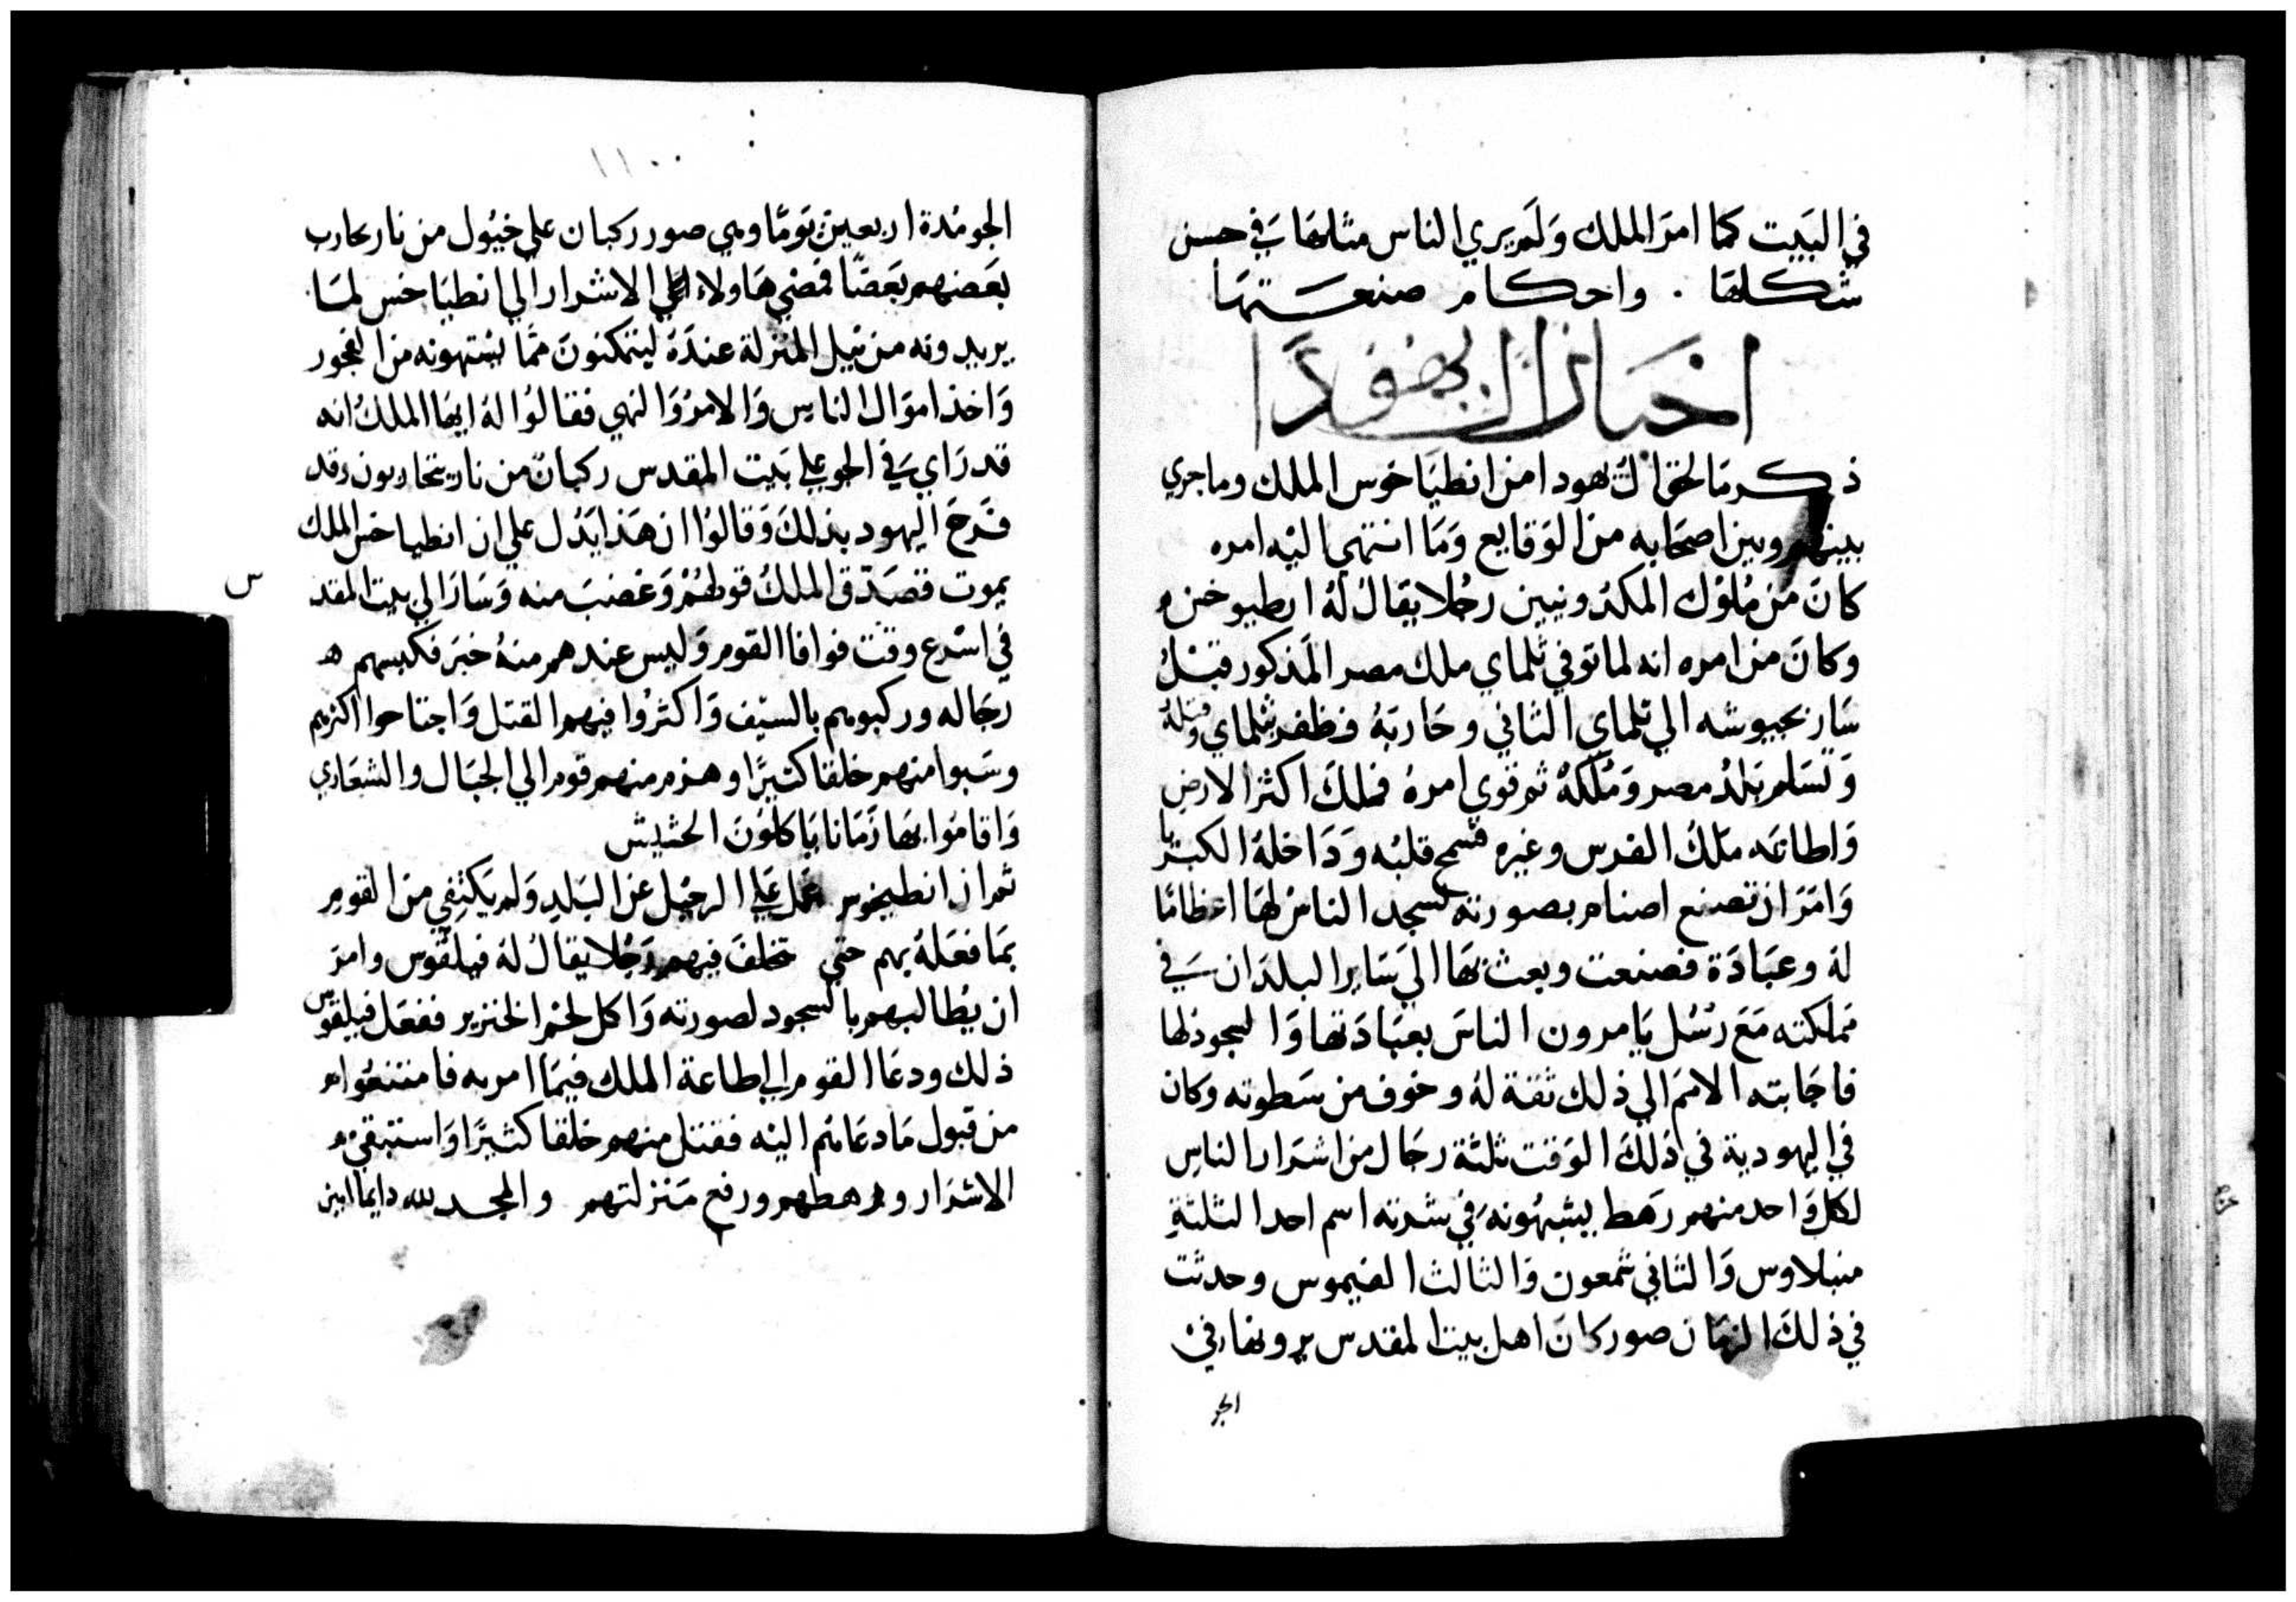 في البيت كما امر الملك ولم يري الناس مثلها في حسن
شكلها . واحكام صنعتها
اخبار اليهودا
ذكر ما لحق ال يهودا من انطياخوس الملك وما جري
بينهم وبين اصحابه من الوقايع وما انتهي اليه امره
كان من ملوك المكدونيين رجلا يقال له انطيوخس
وكان من امره انه لما توفي تلماي ملك مصر المذكور قبل
سار بجيوشه الي تلماي الثاني وحاربه فظفر بتلماي وقتله
وتسلم بلد مصر وملكه ثم قوي امره فملك اكثر الارض
واطاعه ملك الفرس وغيره فشمخ قلبه وداخله الكبريا
وامر ان تصنع اصنام بصورته لسجد الناس لها اعظاما
له وعبادة فصنعت وبعث بها الي ساير البلدان في
مملكته مع رسل يامرون الناس بعبادتها والسجود لها
فاجابته الامم الي ذلك ثقة له وخوف من سطوته وكان
في اليهودية في ذلك الوقت ثلثة رجال من اشرار الناس
لكل واحد منهم رهط يشبهونه في شدته اسم احد الثلثة
منبلاوس والثاني شمعون والثالث الضيموس وحدثت
في ذلك الزمان صور كان اهل بيت المقدس يرونها في
الجو
١١٠٠
الجو مدة اربعين يوما وهي صور ركبان علي خيول من نار يحارب
بعضهم بعضا فمضي هاولاء الاشرار الي انطياخس لما
يريدونه من نيل المنزلة عنده ليتمكنون مما يشتهونه من الفجور
واخذ اموال الناس والامر والنهي فقالوا له ايها الملك انه
قد راي في الجو علي بيت المقدس ركبان من نار يتحاربون وقد
فرح اليهود بذلك وقالوا ان هذا يدل علي ان انطياخس الملك
يموت فصدق الملك قولهم وغضب منه وسار الي بيت المقدس
في اسرع وقت فوافا القوم وليس عندهم منه خبر فكبسهم
رجاله وركبوهم بالسيف واكثروا فيهم القتل واجتاحوا اكثرهم
وسبوا منهم خلقا كثيرا وهزم منهم قوم الي الجبال والشعاري
واقاموا بها زمانا ياكلون الحشيش
ثم ان انطيخوس عمل علي الرحيل عن البلد ولم يكتفي من القوم
بما فعله بهم حتي تخلف فيهم رجلا يقال له فيلقوس وامر
ان يطالبهم بالسجود لصورته واكل لحم الخنزير ففعل فيلقوس
ذلك ودعا القوم الي اطاعة الملك فيما امر به فامتنعوا
من قبول ما دعاهم اليه فقتل منهم خلقا كثيرا واستبقي
الاشرار ورهطهم ورفع منزلتهم والمجد لله دايما ابين